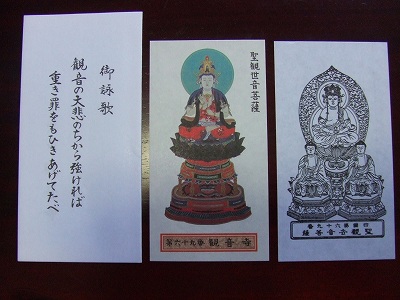 御詠歌
観音の大悲のちから強ければ
重き罪をもひきあげてたべ
聖観世音菩薩
第六十九番 観音寺
四國第六十九番
聖観世音菩薩